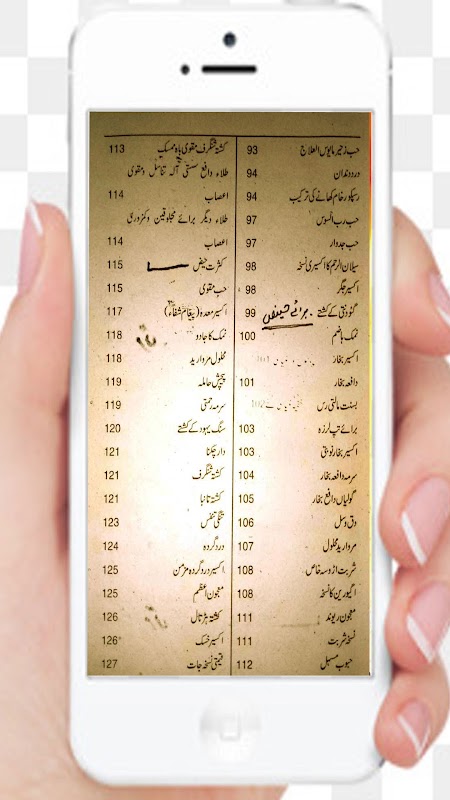 حب زحیر مایوس العلاج 93
درد دندان 94
رسکپور خام کھانے کی ترکیب 94
حب رب السوس 97
حب جدوار 97
سیلان الرحم کا اکسیری نسخہ 98
اکسیر جگر 98
گئودنتی کے کشتے 99
نمک ہاضم 100
اکسیر بخار 101
دافعہ بخار 101
بسنت مالتی رس 102
برائے تپ لرزہ 103
اکسیر بخار نوبتی 103
سرمہ دافعہ بخار 104
گولیاں دافع بخار 105
دق وسل 106
مروارید محلول 107
شربت اڑوسہ خاص 108
اگیورین کا نسخہ 108
معجون ریوند 111
نسخہ شربت 111
حبوب مسہل 112
کشتہ شنگرف مقوی باہ و ممسک 113
طلاء دافع سستی آلہ تناسل و مقوی
اعصاب 114
طلاء دیگر برائے مجلوقین و کمزوری
اعصاب 114
کثرت حیض 115
حب مقوی 115
اکسیر معدہ (پیغام شفاء) 117
نمک کا جادو 118
محلول مروارید 118
پیچش حاملہ 119
سرمہ رحمتی 119
سنگ یہود کے کشتے 120
دار چکنا 121
کشتہ شنگرف 121
کشتہ تانبا 121
تنگی تنفس 123
درد گردہ 124
اکسیر درد گردہ مزمن 125
معجون اعظم 125
کشتہ ہڑتال 126
اکسیر خسک 126
قیمتی نسخہ جات 127